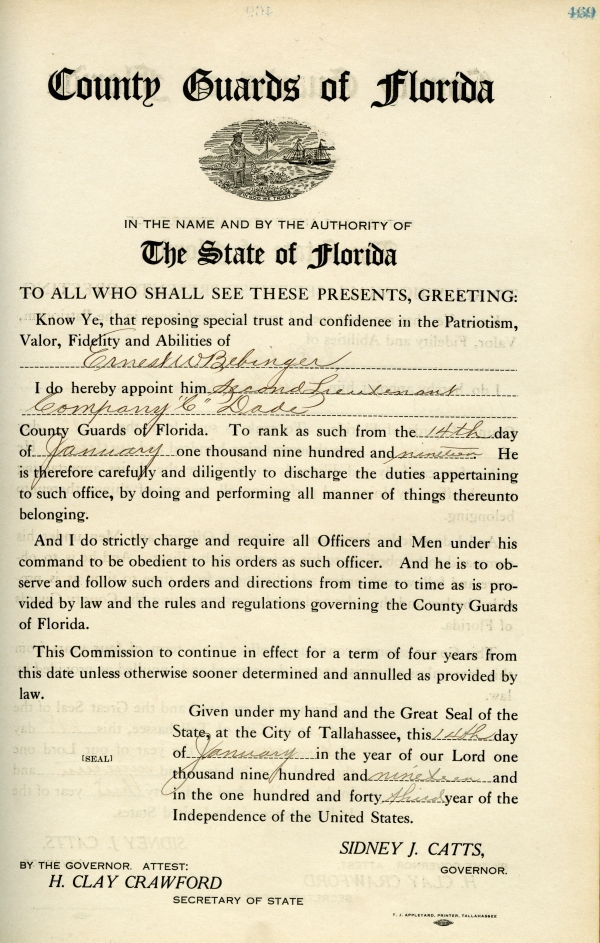 469
County Guards of Florida
IN GOD WE TRUST
IN THE NAME AND BY THE AUTHORITY OF
The State of Florida
TO ALL WHO SHALL SEE THESE PRESENTS, GREETING:
Know Ye, that reposing special trust and confidence in the Patriotism,
Valor, Fidelity and Abilities of
Ernest W Bebinger
I do hereby appoint him Second Lieutenant
Company "C" Dade
County Guards of Florida. To rank as such from the 14th day
of January one thousand nine hundred and nineteen He
is therefore carefully and diligently to discharge the duties appertaining
to such office, by doing and performing all manner of things thereunto
belonging.
And I do strictly charge and require all Officers and Men under his
command to be obedient to his orders as such officer. And he is to ob-
serve and follow such orders and directions from time to time as is pro-
vided by law and the rules and regulations governing the County Guards
of Florida.
This Commission to continue in effect for a term of four years from
this date unless otherwise sooner determined and annulled as provided by
law.
Given under my hand and the Great Seal of the
State, at the City of Tallahassee, this 14th day
of January in the year of our Lord one
[SEAL]
thousand nine hundred and nineteen and
in the one hundred and forty third year of the
Independence of the United States.
SIDNEY J. CATTS,
GOVERNOR.
BY THE GOVERNOR. ATTEST:
H. CLAY CRAWFORD
SECRETARY OF STATE
T. J. APPLEYARD, PRINTER, TALLAHASSEE